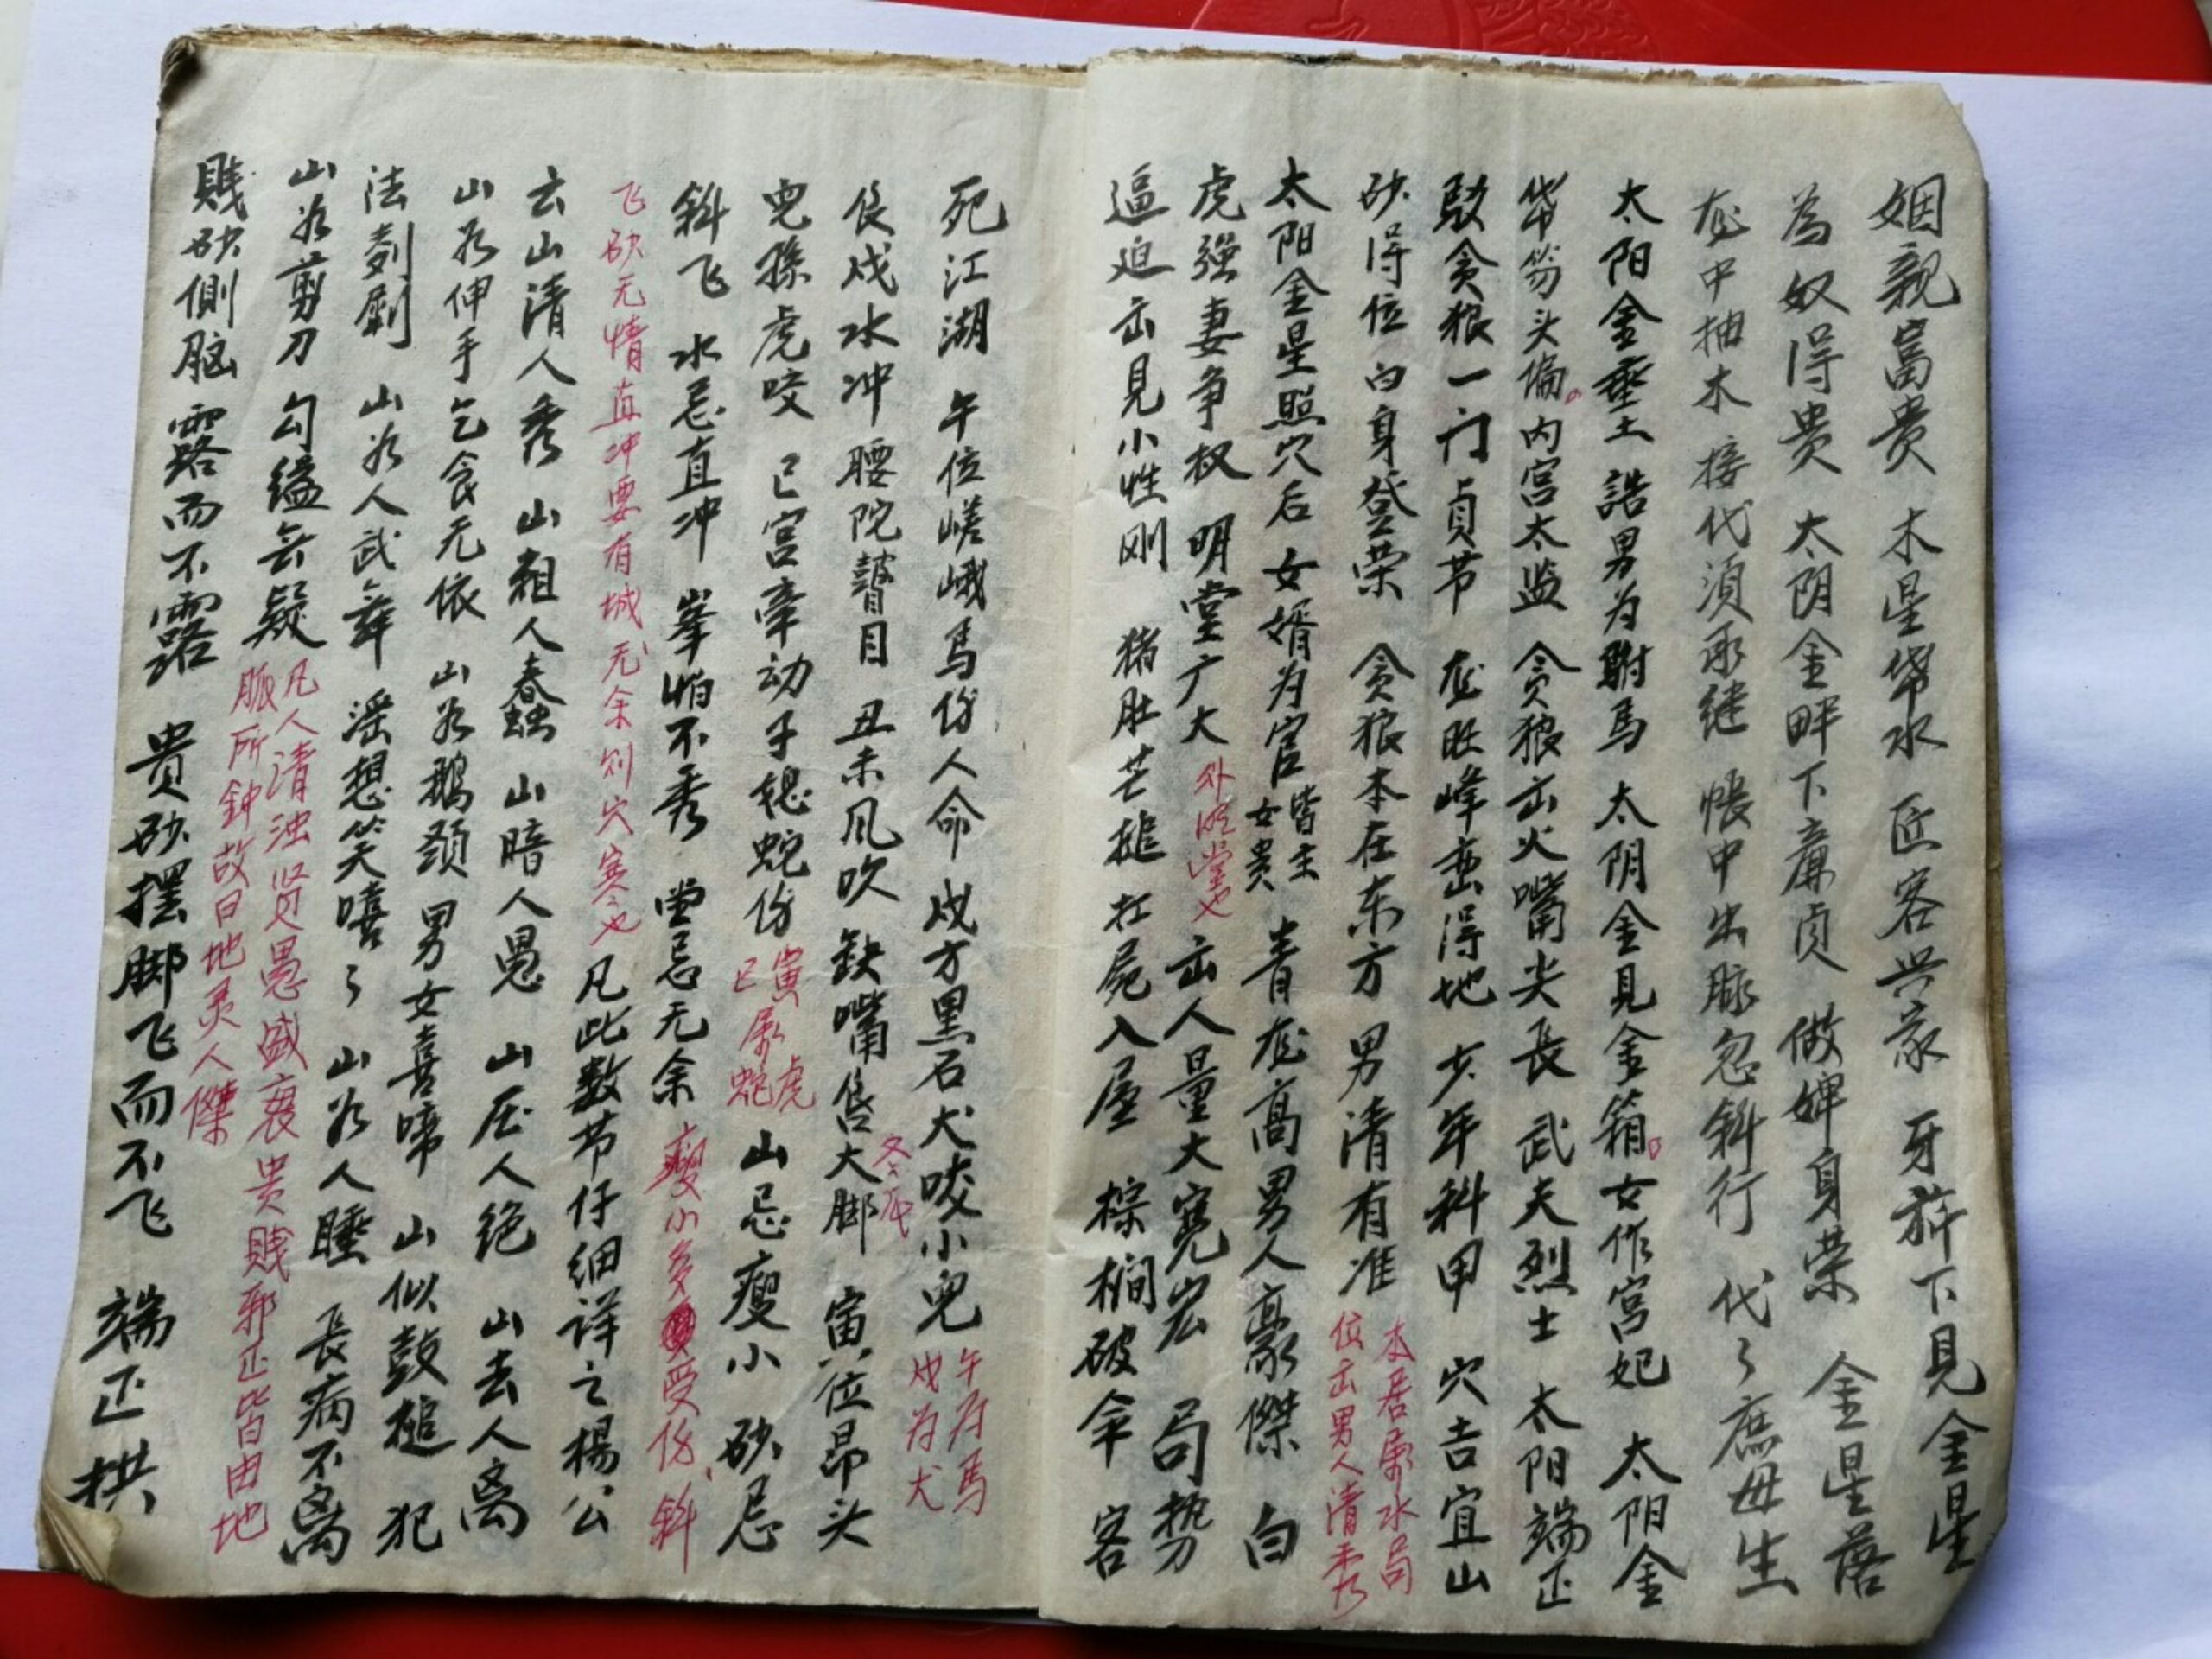 姻親富贵 木星帶水 匠客兴家 牙梳下見金星
為奴得贵 太阴金畔下廉贞 做婢身荣 金星落
龙中抽木 接代須承继 帳中出脉忽斜行 代々庶母生
太阳金垂土 誥男为駙馬 太阴金見金箱 女作宫妃 太阳金
帶笏头偏 内宫太监 贪狼出火嘴尖長 武夫烈士 太阳端正
贪狼一门贞节 龙旺峰峦得地 少年科甲 穴吉宜山
砂得位 白身登荣 贪狼本在东方 男清有准
木居属水局
位出男人清秀
太阳金星照穴后 女婿为官
皆主
女贵
青龙高男人豪傑 白
虎强妻争权 明堂广大
外明堂也
出人量大寬宏 局势
逼迫出見小性刚 猪肚芒槌 扛屍入屋 棕榈破伞 客
死江湖 午位嵯峨馬伤人命 戌方黑石犬咬小兒
午为馬
戌为犬
艮戌水冲腰陀瞽目 丑未风吹 缺嘴隻大脚 寅位昂头
兒孫虎咬 已宫牵动子媳蛇伤
寅属虎
已属蛇
山忌瘦小 砂忌
斜飞 水忌直冲 峯怕不秀 堂忌无余
瘦小多受伤、斜
飞砂无情直冲要有城无余则穴寒也
凡此数节仔细详之楊公
云山清人秀 山粗人蠢 山暗人愚 山压人绝 山去人离
山形伸手乞食无依 山形鹅颈 男女喜啼 山似鼓槌 犯
法刺剮 山形人武舞 滛想笑嘻々 山形人睡 長病不离
山形剪刀 勾缢无疑
凡人清浊贤愚盛衰贵賤邪正皆由地
脈所鈡故曰地灵人傑
賎砂側脑 露而不露 贵砂摆脚飞而不飞 端正拱